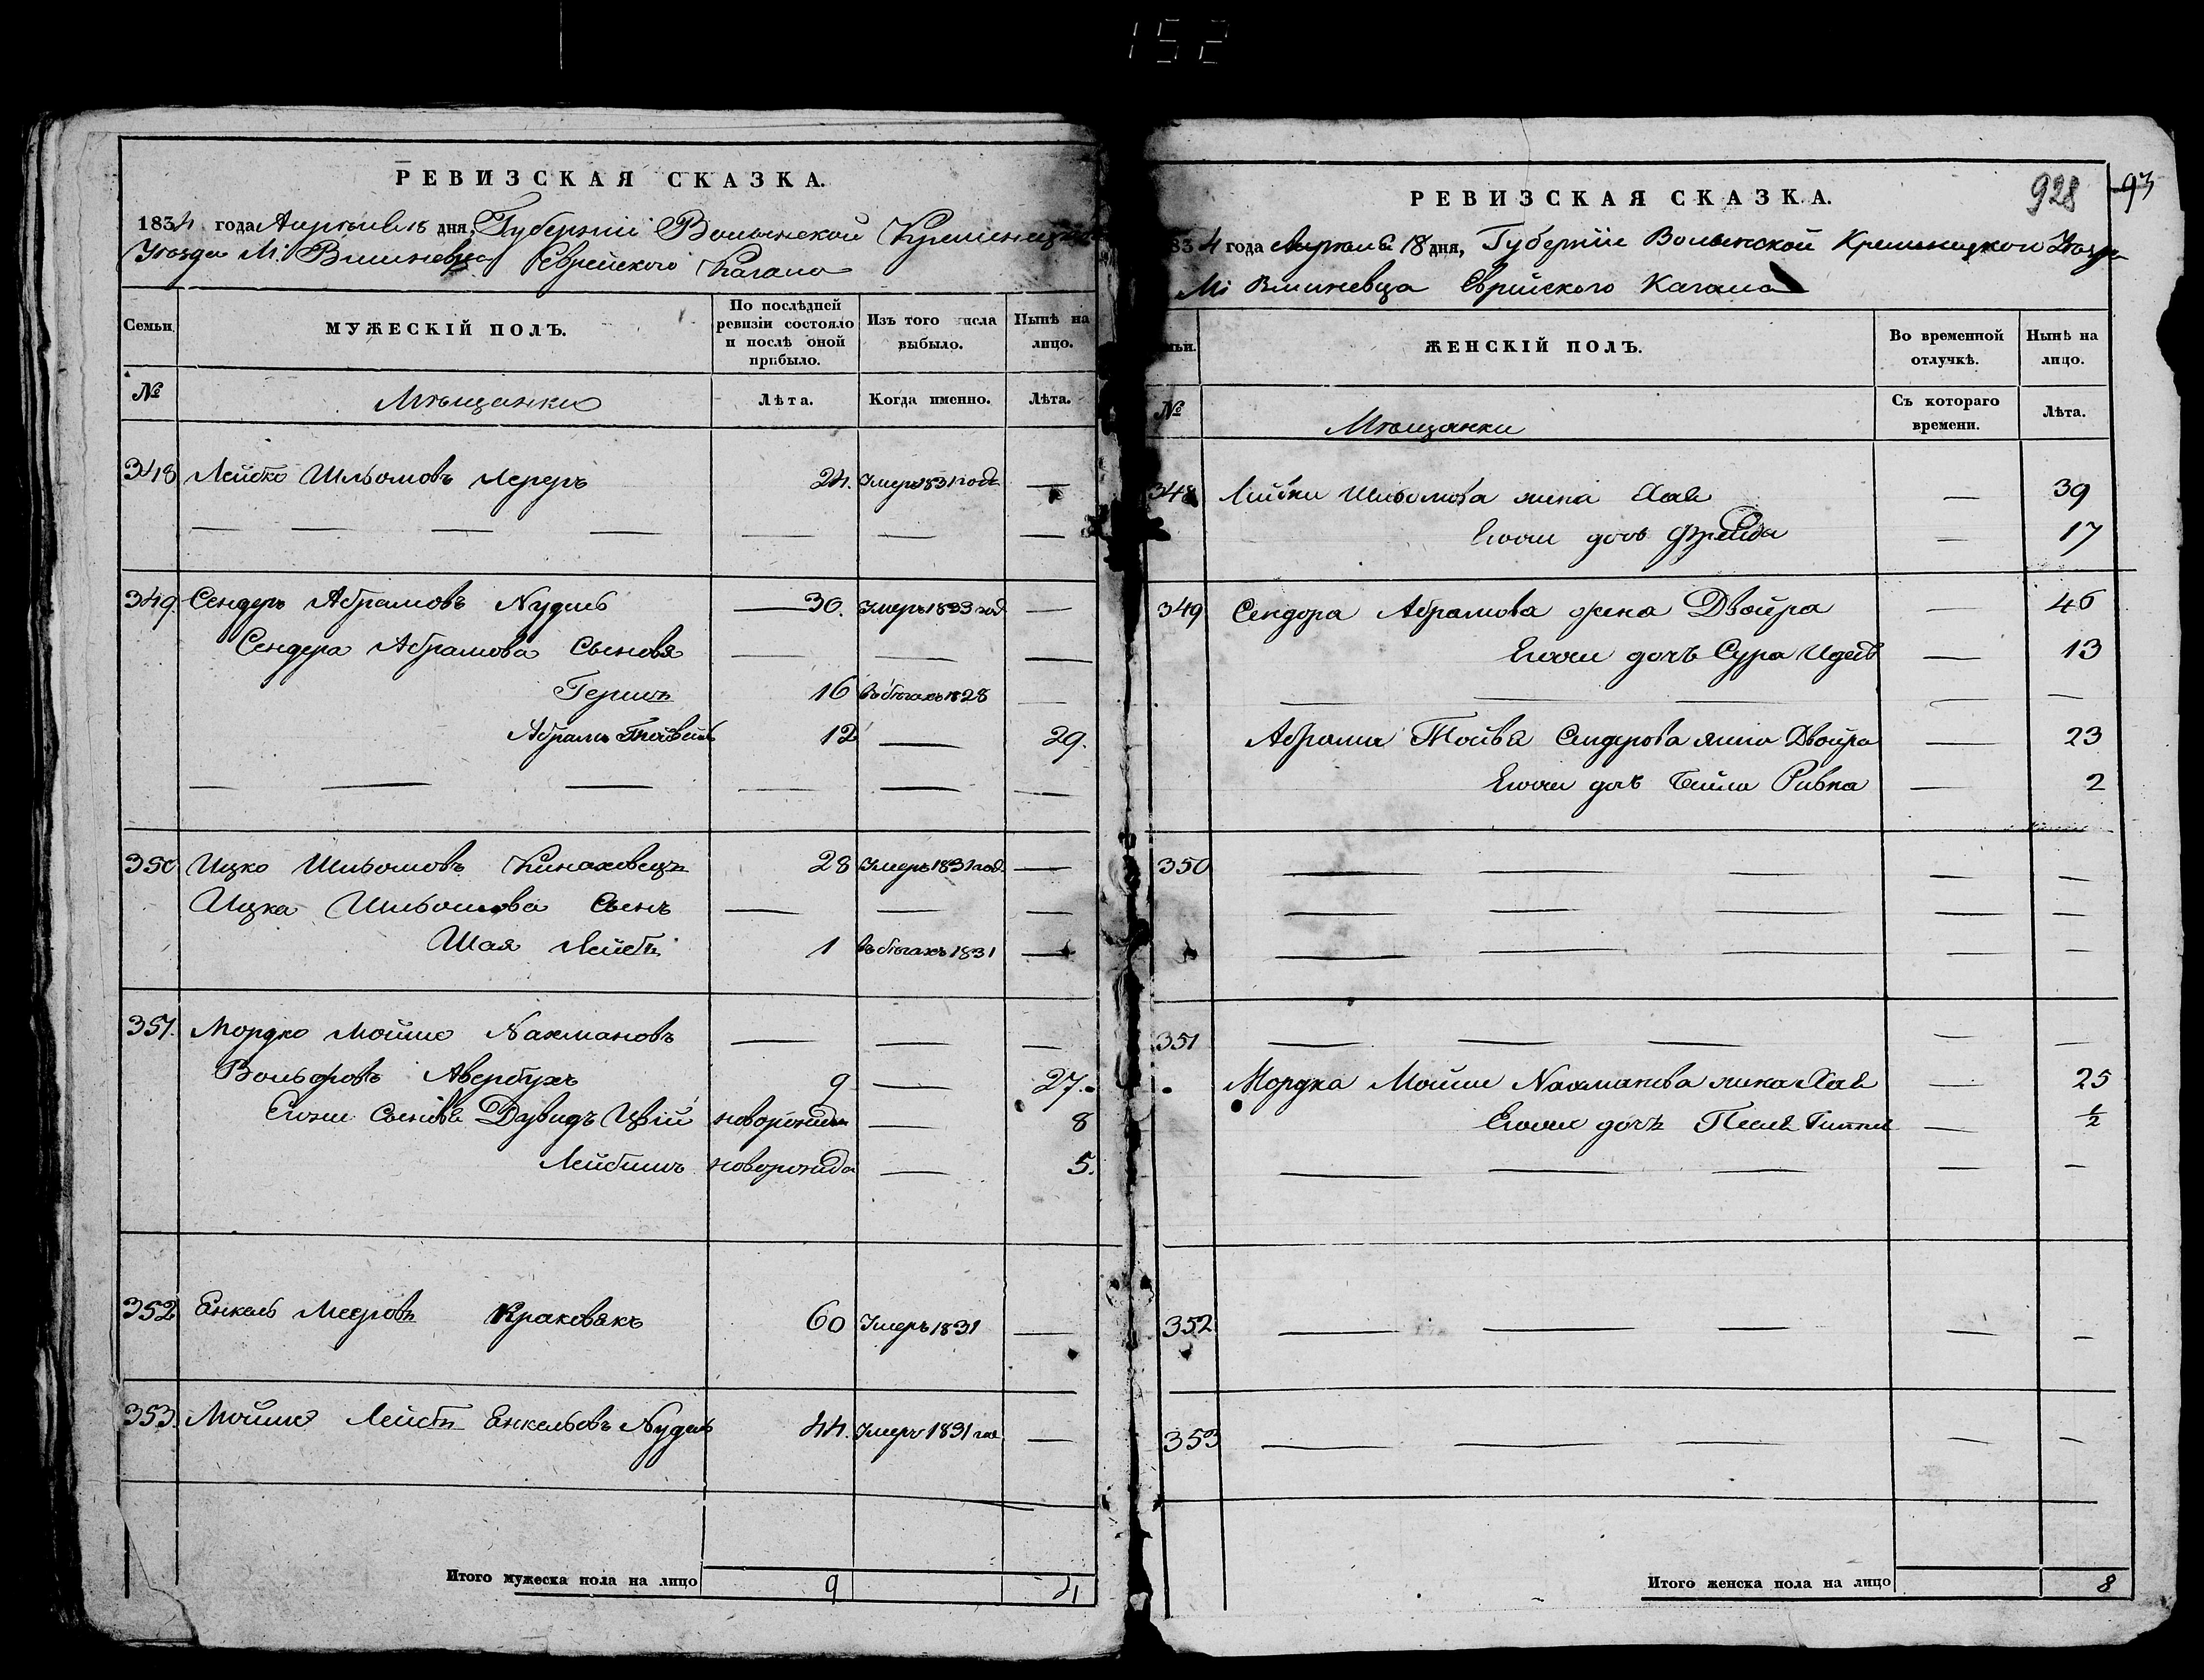 152
РЕВИЗСКАЯ СКАЗКА.
1834 года Апреля 18 дня, Губернии Волынской Кременецкаго
Уезда М: Вишневца Еврейского Кагала
Семьи.
МУЖЕСКІЙ ПОЛЪ.
По послѣдней ревизіи состояло и послѣ оной прибыло.
Изъ того числа выбыло.
Нынѣ на лицо.
№
Мѣщанки
Лѣта.
Когда именно.
Лѣта.
348 Лейбко Шльомовъ Лереръ 24. Умеръ 1831 года —
349. Сендеръ Абрамовъ Nудель — 30. Умеръ 1833 год —
Сендера Абрамова Сыновя — — —
Гершъ 16 Въ бѣгахъ 1828 —
Абрамъ Тойвель 12 — 29.
350 Ицко Шльомовъ Кинаховецъ 28 Умеръ 1831 год. —
Ицка Шльомова Сынъ — — —
Шая Лейбъ 1 Въ бѣгахъ 1831 —
351. Мордко Мойше Nахмановъ — — —
Вольфовъ Авербухъ 9 — 27.
Егоже Сыновя Давидъ Цвій новорожден — 8
Лейбишъ новорожде — 5.
352 Енкель Мееровъ Краковякъ 60 Умеръ 1831 —
353. Мойше Лейбъ Енкельовъ Nудель 44. Умеръ 1831 год. —
Итого мужеска пола на лицо 9 4
928 93
РЕВИЗСКАЯ СКАЗКА.
834 года Апреля 18 дня, Губерніи Волынской Кременецкои Уезда
М: Вишневца Еврейского Кагала
ьи.
ЖЕНСКІЙ ПОЛЪ.
Во временной отлучкѣ.
Нынѣ на лицо.
№
Мѣщанки
Съ котораго времени.
Лѣта.
348 Лейбки Шльомова жена Хая — 39
Егоже дочь Фрейда — 17
349 Сендора Абрамова жена Двойра — 46
Егоже дочъ Сура Идесъ — 13
Абрама Тойвя Сендерова жена Двойра — 23
Егоже дочъ Бейла Ривка — 2
350 — — — — —
351 — — — — —
Мордка Мойши Nахманова жена Хая — 25
Егоже дочъ Песя Гитля — ½
352 — — — — —
353 — — — — —
Итого женска пола на лицо 8